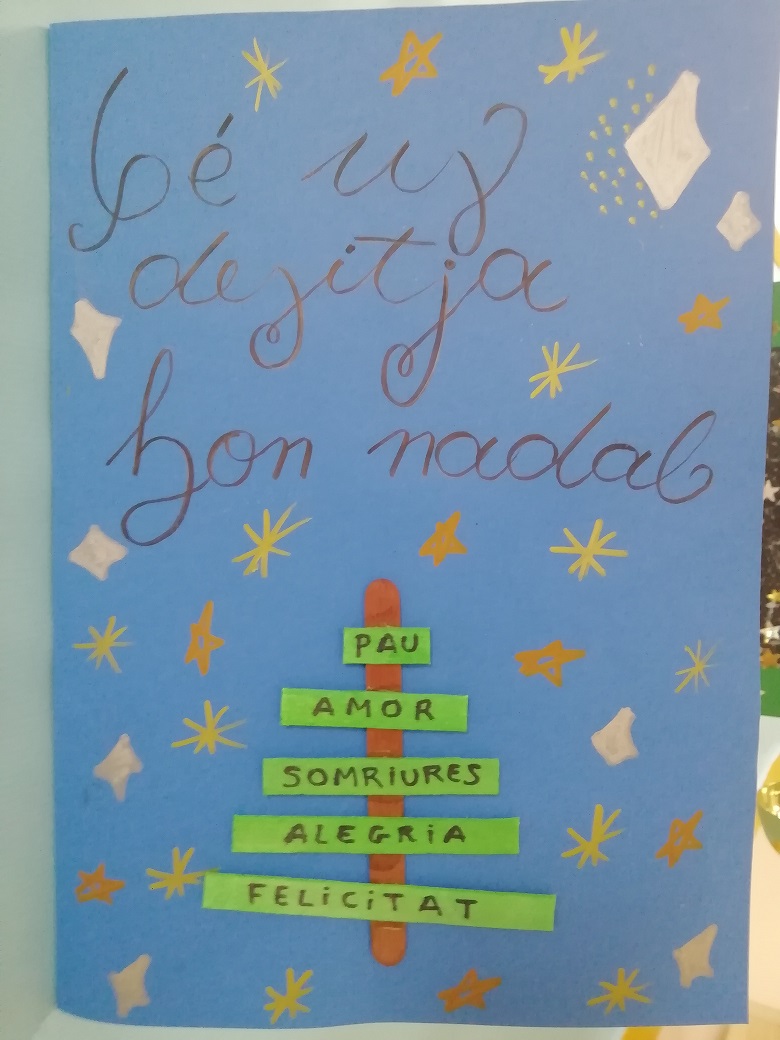 6é us
desitja
bon nadal
PAU
AMOR
SOMRIURES
ALEGRiA
FELiCiTAT